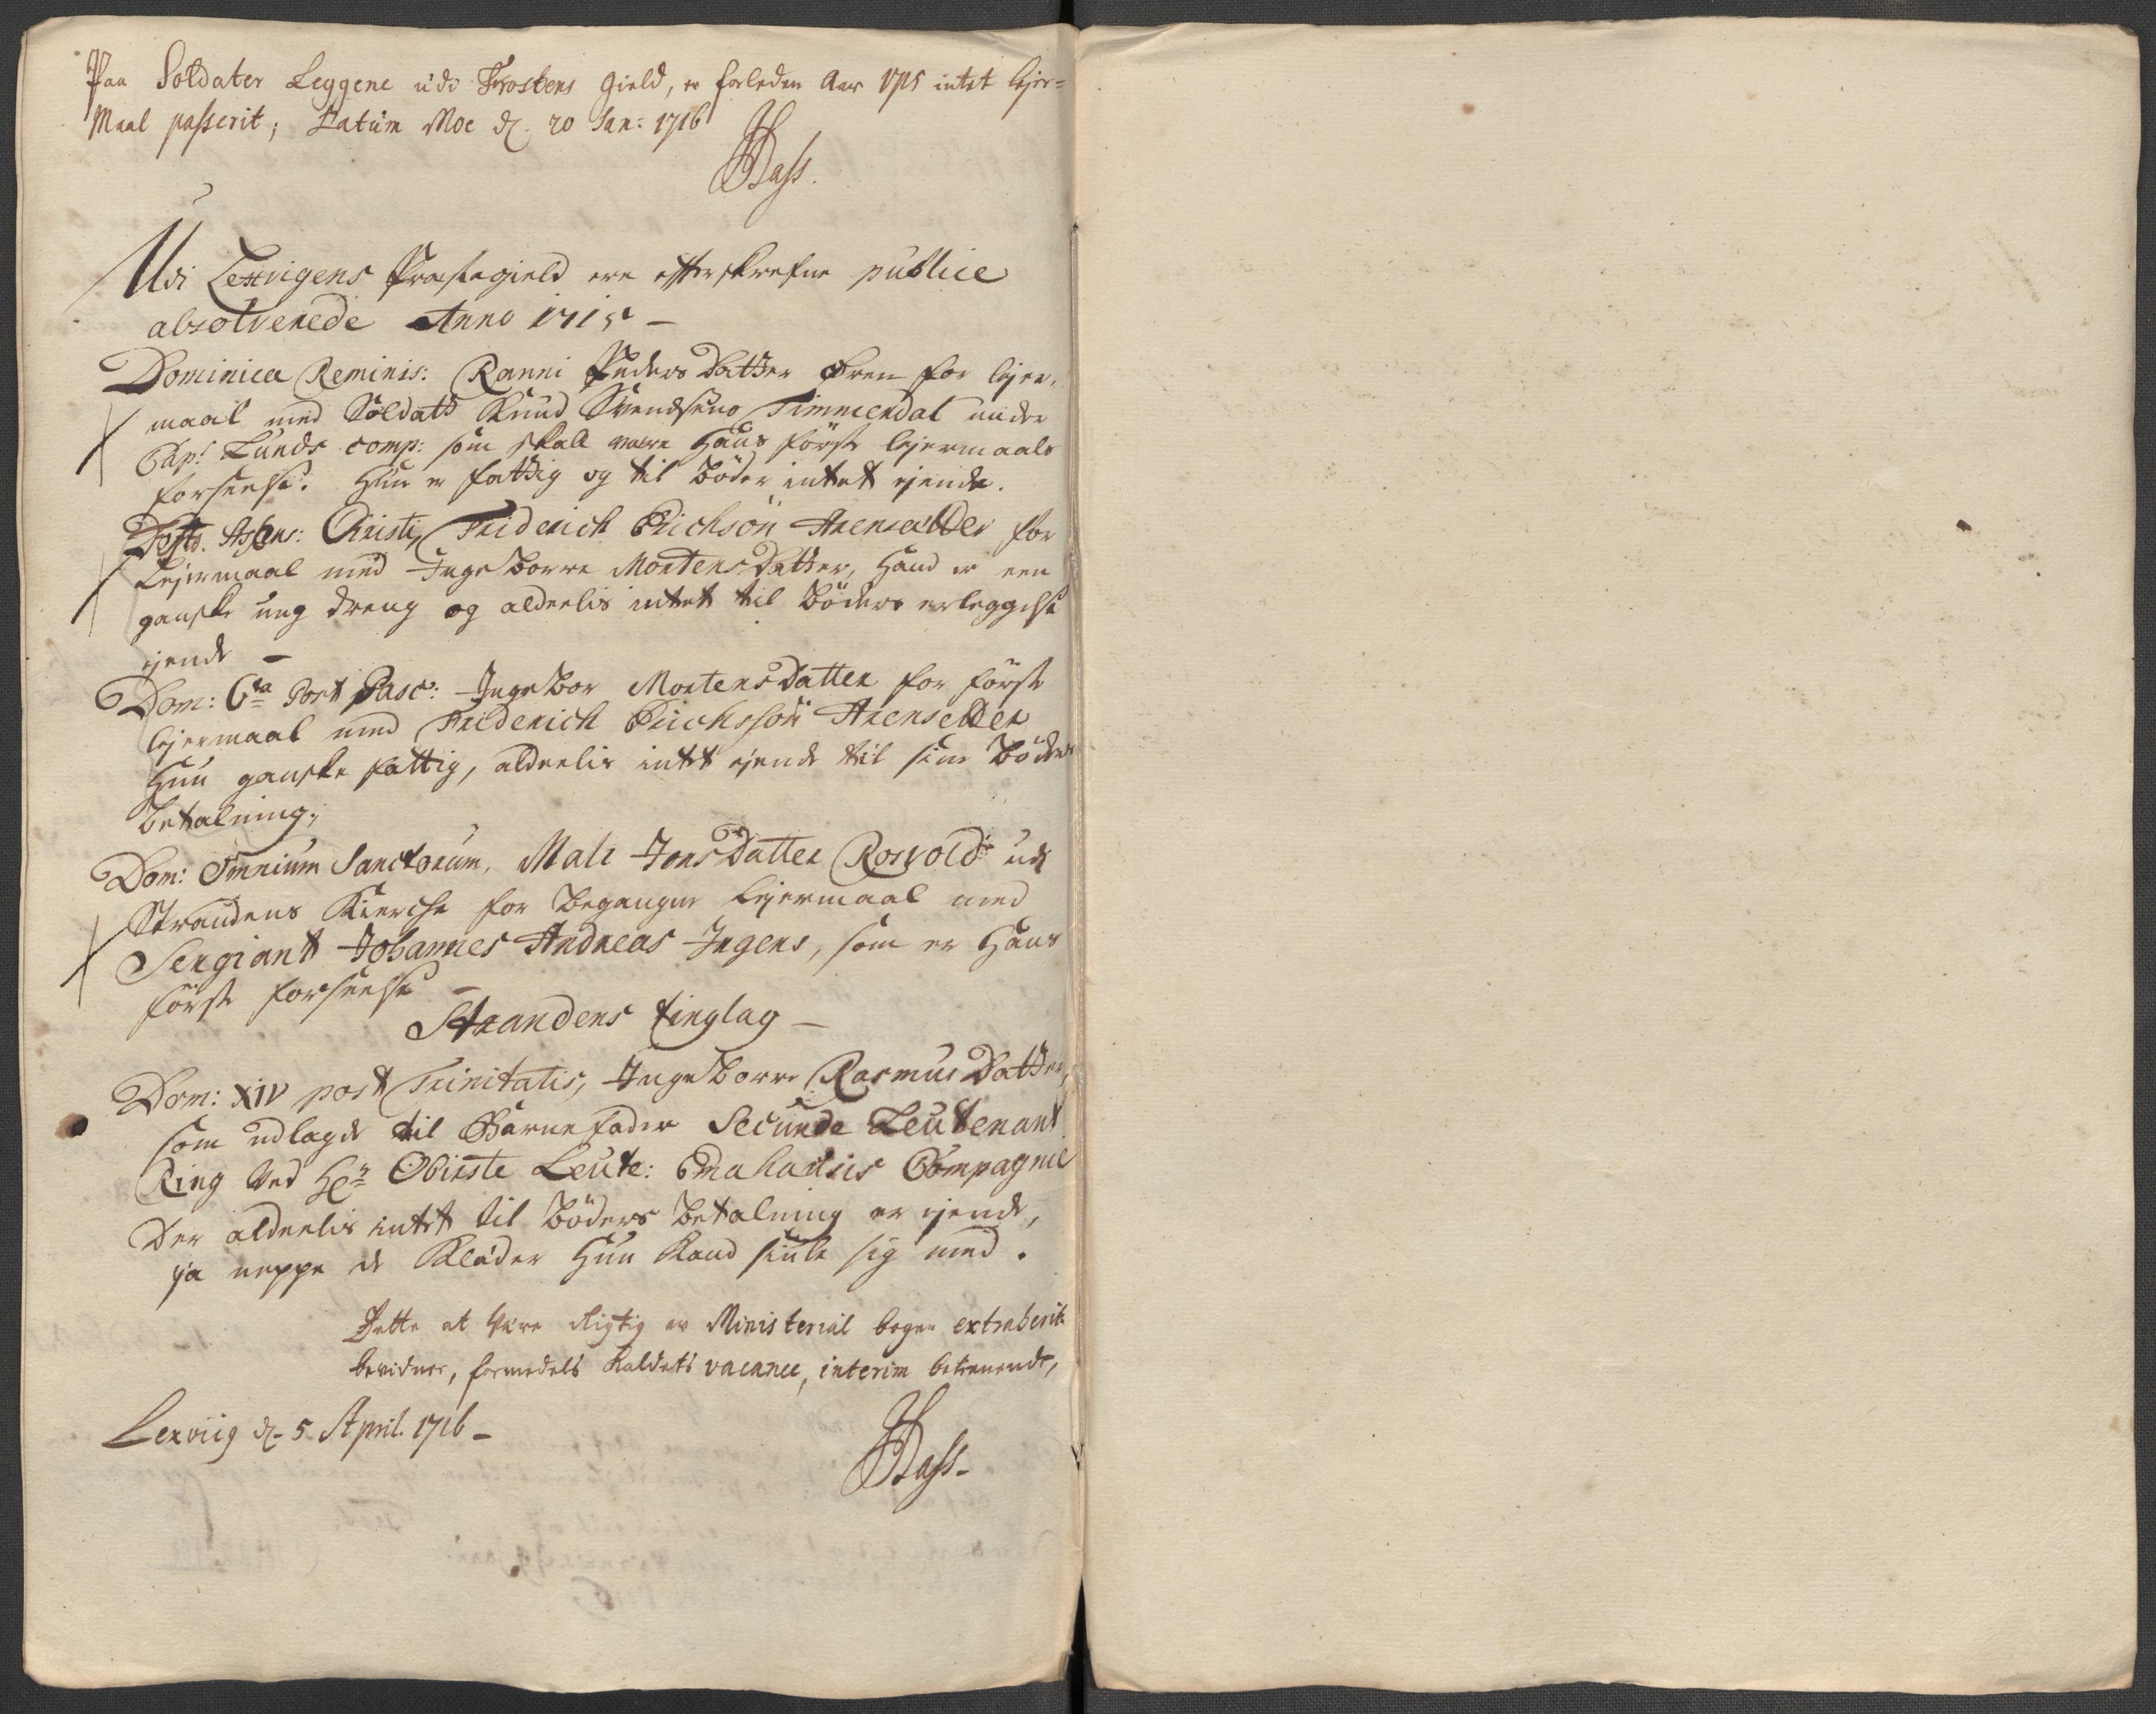 Paa Soldater Leggene udi Frostens gield, er forleden Aar 1715 intet lejer=
Maal passerit; Datum Moe d. 20 Jan: 1716
HHass.
Udi Lexvigens Præstegield ere effterskrefne publice
absolverede Anno 1715 –
Dominica Reminis: Ranni Peders Datter for lejer,
maal med Soldatt Knud Svendsens Timmerdal under
Capt Lunds comp: som skall være Hans första lejermaals
forseelse. Hun er fattig og til böder intet ejende.
Festo Ascens: Christi, Friderich Erichsön for
Lejermaal med Ingeborre MortensDatter, Hand er een
ganske ung dreng og aldeelis intet til böders erleggelse
ejende –
Dom: 6ta Post Pasc: Ingebor MortensDatter for första
lejermaal med Friderich Erichssön
Hun ganske fattig, aldeelis intet ejende til sine böders
betalning;
Dom: Omnium Sanctorum, Mali JonsDatter Rosvold udj
Strandens Kierche for begangne lejermaal med
Sergiant Johannes Andreas Irgens, som er Hans
förste forseelse –
Strandens tinglag –
Dom: XIV post Trinitatis, Ingeborre RasmusDatter,
som udlagde til Barnefader Secunde Leutenant
Ring ved Hr Obirste Leute: Compagnie
Der aldeelis intet til böders betalning er ejende,
ja neppe de Klæder Hun Kand skiule sig med.
Dette at være rigtig av Ministerial bogen extraherit
bevidner, formedelst Kaldets vacance, interim betienende,
Lexviig d. 5 April. 1716 –
HHass.